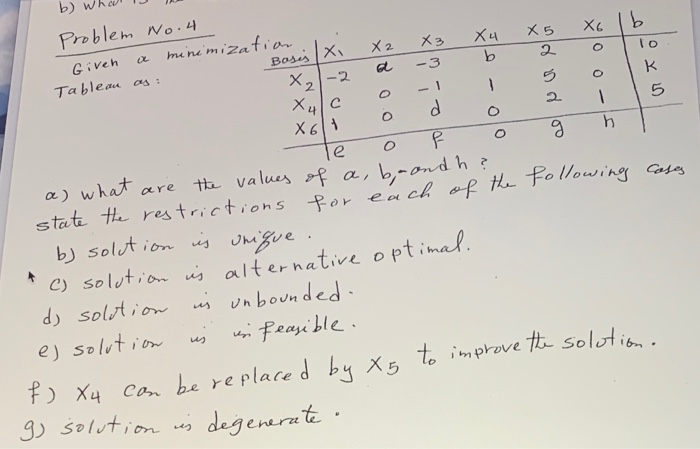 b) What is
Problem No. 4
Given a minimization
Tableau as:
Basis x1 x2 x3 x4 x5 x6 b
x2 -2 a -3 b 2 0 10
x4 c 0 -1 1 5 0 K
x6 1 0 d 0 2 1 5
e 0 f 0 g h
a) what are the values of a, b, and h?
state the restrictions for each of the following cases
b) solution is unique.
c) solution is alternative optimal.
d) solution is unbounded.
e) solution is infeasible.
f) x4 can be replaced by x5 to improve the solution.
g) solution is degenerate.